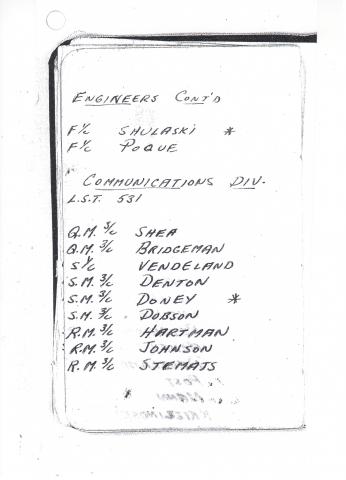 ENGINEERS CONT'D
F 1/C SHULASKI *
F 1/C POQUE
COMMUNICATIONS DIV.
L.S.T. 531
Q.M. 3/C SHEA
Q.M. 3/C BRIDGEMAN
S 1/C VENDELAND
S.M. 3/C DENTON
S.M. 3/C DONEY *
S.M. 3/C DOBSON
R.M. 3/C HARTMAN
R.M. 3/C JOHNSON
R.M. 3/C STEMATS